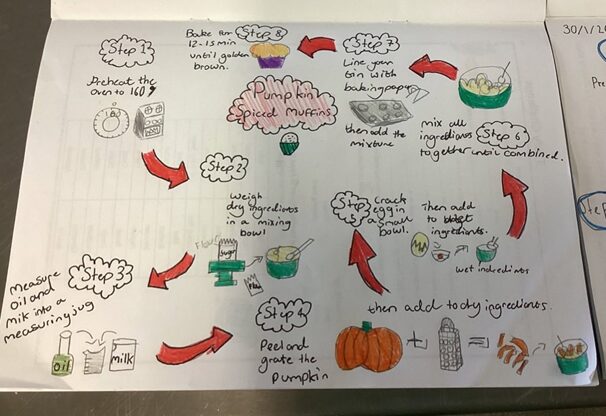 Pumpkin
Spiced Muffins
Step 1
Preheat the
oven to 160°
Step 2
Weigh
dry ingredients
in a mixing
bowl
Flour
sugar
Step 3
Measure
Oil and
milk into a
measuring jug
oil
milk
Step 4
Peel and
grate the
Pumpkin
then add to dry ingredients.
Step
Crack
egg in
a small
bowl.
Then add
to
ingredients.
wet ingredients
Step 6
mix all
ingredients
together until combined.
Step 7
Line your
tin with
baking paper
then add the
mixture
Step 8
Bake for
12-15 min
until golden
brown.
30/1/20
Pre
Step